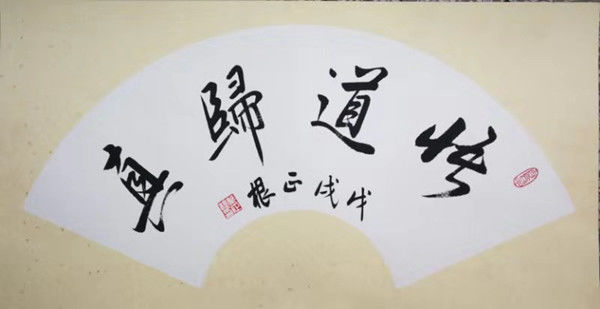 悟道歸真
戊戌正根